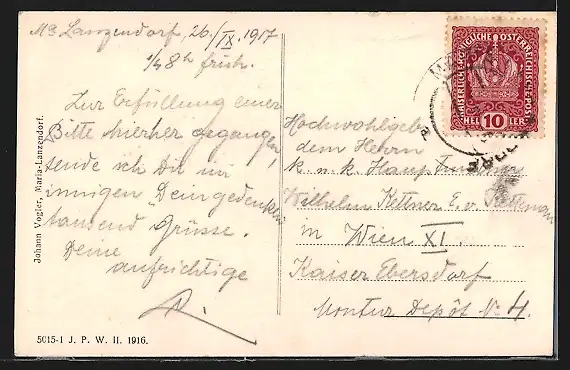 Ma Lanzendorf, 26./IX. 1917
1/4 8h früh.
Zur Erfüllung einer
Bitte hierher gegangen,
sende ich Dir in
innigem Deingedenken
tausend Grüsse.
Deine
aufrichtige
R.
Johann Vogler, Maria-Lanzendorf.
5015-1 J. P. W. II. 1916.
KAISERLICHE KÖNIGLICHE ÖSTERREICHISCHE POST
HELLER 10
Hochwohlgeb.
dem Herrn
k. u. k. Hauptmann
Wilhelm Kettner E. v. Kettenau
in Wien XI.
Kaiser Ebersdorf
Montur Depôt No 4.